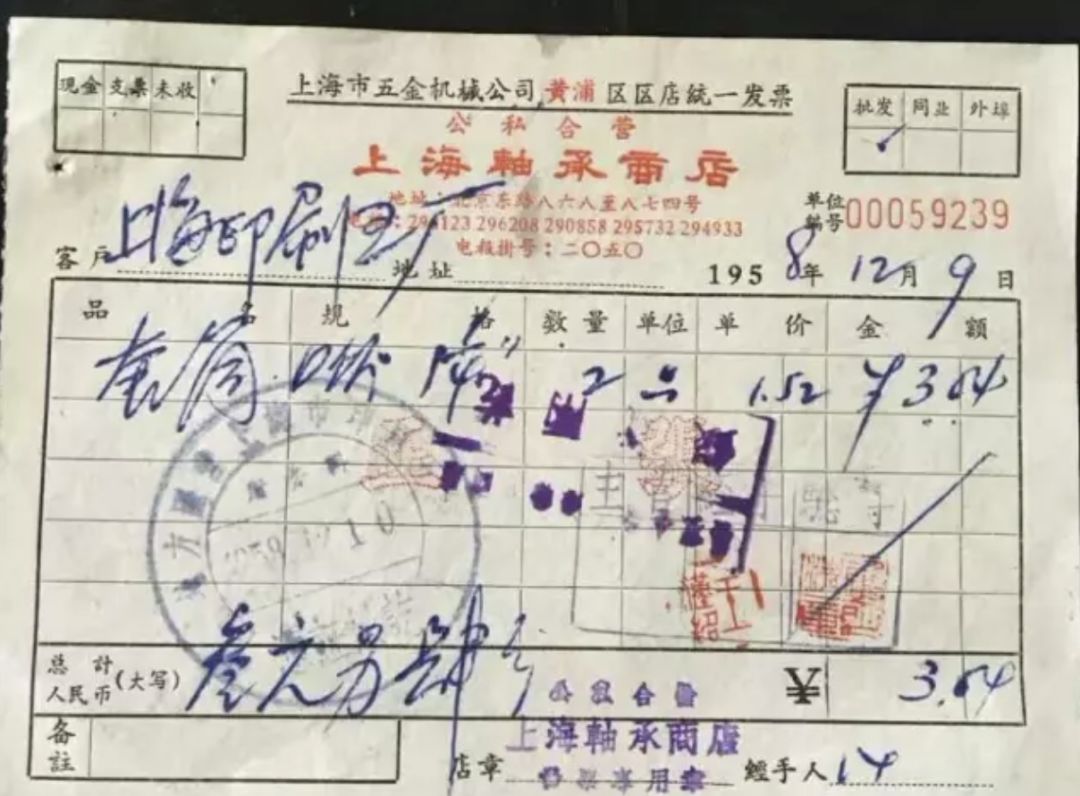 现金 支票 未收
上海市五金机械公司 黄浦 区区店統一发票
批发 同业 外埠
公私合营
上海軸承商店
地址:北京东路八六八至八七四号
电话:294123 296208 290858 295732 294933
电报掛号:二〇五〇
单位编号 00059239
客户 上海印刷四厂 地址 1958年 12月 9日
品名 規格 数量 单位 单价 金额
2 1.52 ¥3.04
总計人民币(大写) 叁元另肆分 ¥ 3.04
备註
公私合营
上海軸承商店
店章 經手人 14